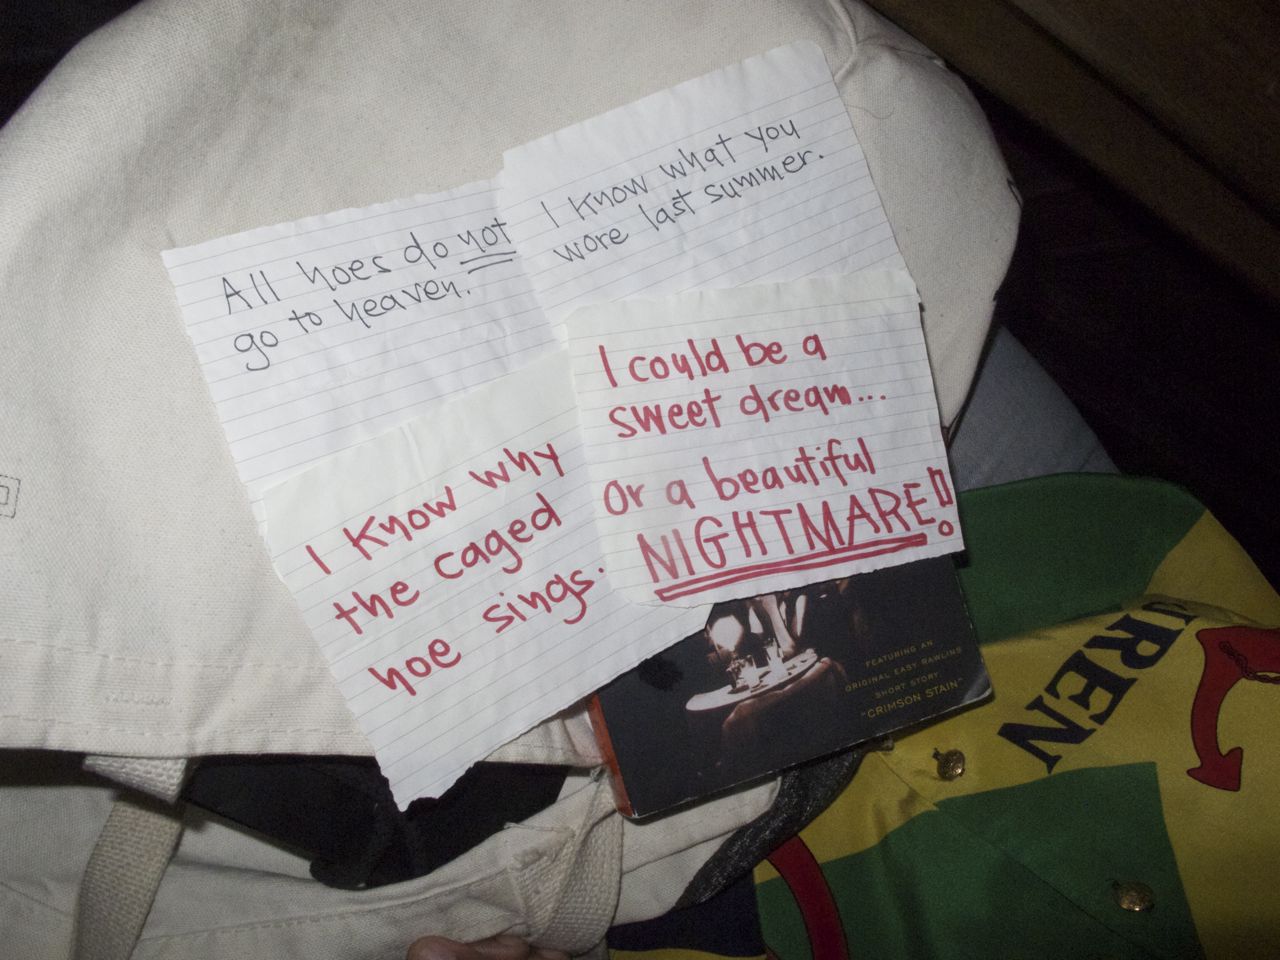 All hoes do not
go to heaven.
I know what you
wore last summer.
I could be a
sweet dream...
Or a beautiful
NIGHTMARE!
I know why
the caged
hoe sings.
FEATURING AN
ORIGINAL EASY RAWLINS
SHORT STORY
"CRIMSON STAIN"